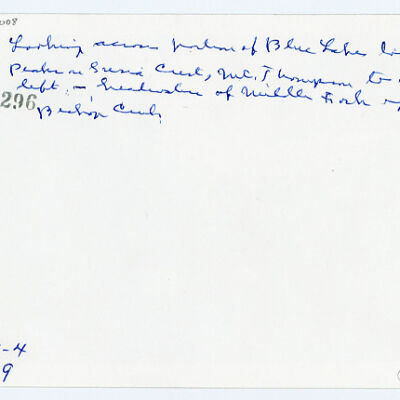 008
Looking across portion of Blue Lakes
Peaks on Sierra Crest, Mt. Thompson to
left. – Headwaters of Middle Fork
296
Bishop Creek
-4
9